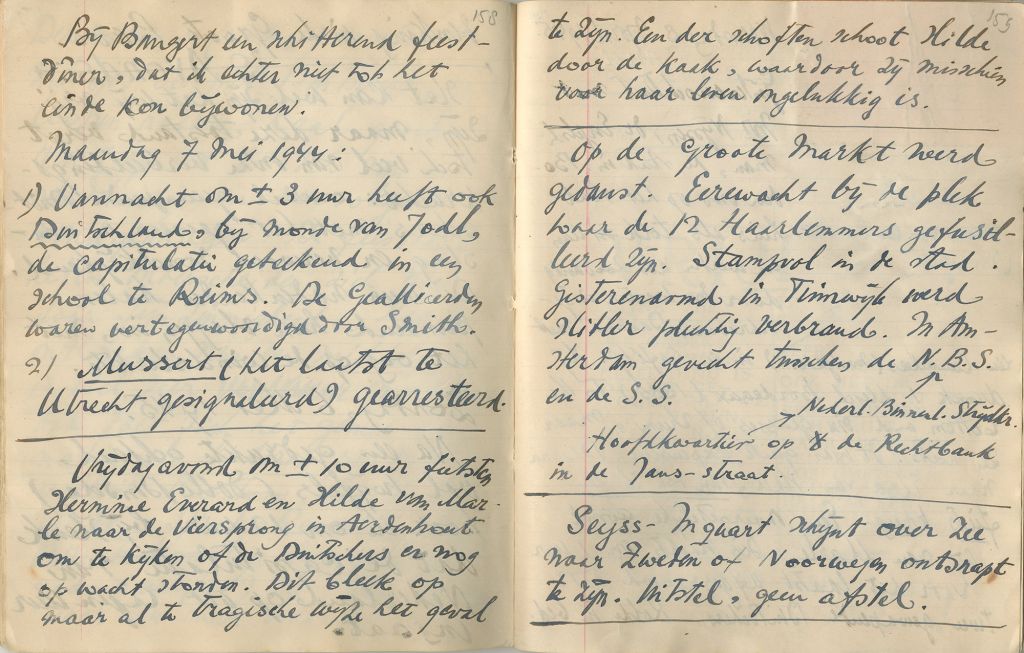 158
Bij Bangert een schitterend feest-
diner, dat ik echter niet tot het
einde kon bijwonen.
Maandag 7 Mei 1944:
1) Vannacht om ± 3 uur heeft ook
Duitschland, bij monde van Jodl,
de capitulatie geteekend in een
school te Reims. De Geallieerden
waren vertegenwoordigd door Smith.
2) Mussert (het laatst te
Utrecht gesignaleerd) gearresteerd.
Vrijdagavond om ± 10 uur fietsten
Herminie Everard en Hilde van Mar-
le naar de Viersprong in Aerdenhout
om te kijken of de Duitschers er nog
op wacht stonden. Dit bleek op
maar al te tragische wijze het geval
159
te zijn. Een der schoften schoot Hilde
door de kaak, waardoor zij misschien
voor haar leven ongelukkig is.
Op de Groote Markt werd
gedanst. Eerewacht bij de plek
waar de 12 Haarlemmers gefusil-
leerd zijn. Stampvol in de stad.
Gisterenavond in Tuinwijk werd
Hitler plechtig verbrand. In Am-
sterdam gevecht tusschen de N.B.S.
en de S.S.
Nederl. Binnenl. Strijdkr.
Hoofdkwartier op de Rechtbank
in de Jans-straat.
Seyss-Inquart schijnt over zee
naar Zweden of Noorwegen ontsnapt
te zijn. Uitstel, geen afstel.